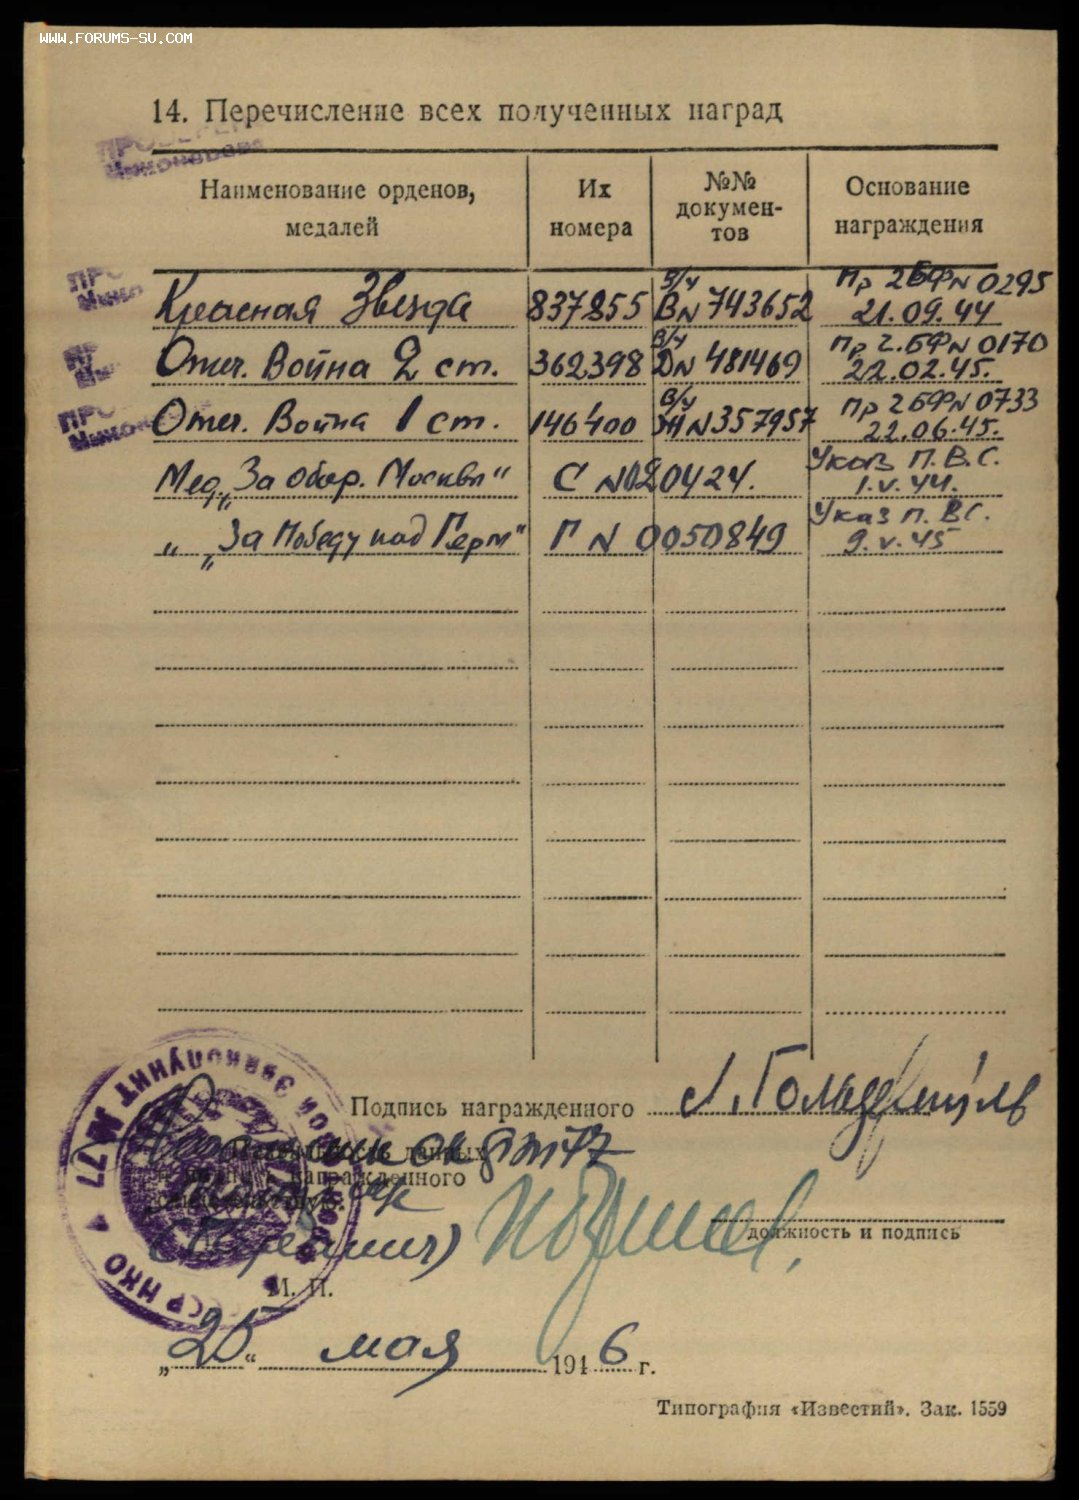 WWW.FORUMS-SU.COM
14. Перечисление всех полученных наград
Наименование орденов, медалей | Их номера | №№ докумен-тов | Основание награждения
Красная Звезда 837855 в/ч В№ 743652 Пр 2БФ№ 0295 21.09.44
Отеч. Война 2 ст. 362398 в/ч Д№ 481469 Пр 2.БФ№ 0170 22.02.45.
Отеч. Война 1 ст. 146400 в/ч Ж№ 357957 Пр 2БФ№ 0733 22.06.45.
Мед. „За обор. Москвы" С №020424. Указ П.В.С. 1.V.44.
„ „За Победу над Герм" Г № 0050849 Указ П.ВС. 9.V.45
Подпись награжденного А.
данных
награжденного
должность и подпись
М. П.
„25" мая 1946 г.
Типография «Известий». Зак. 1559